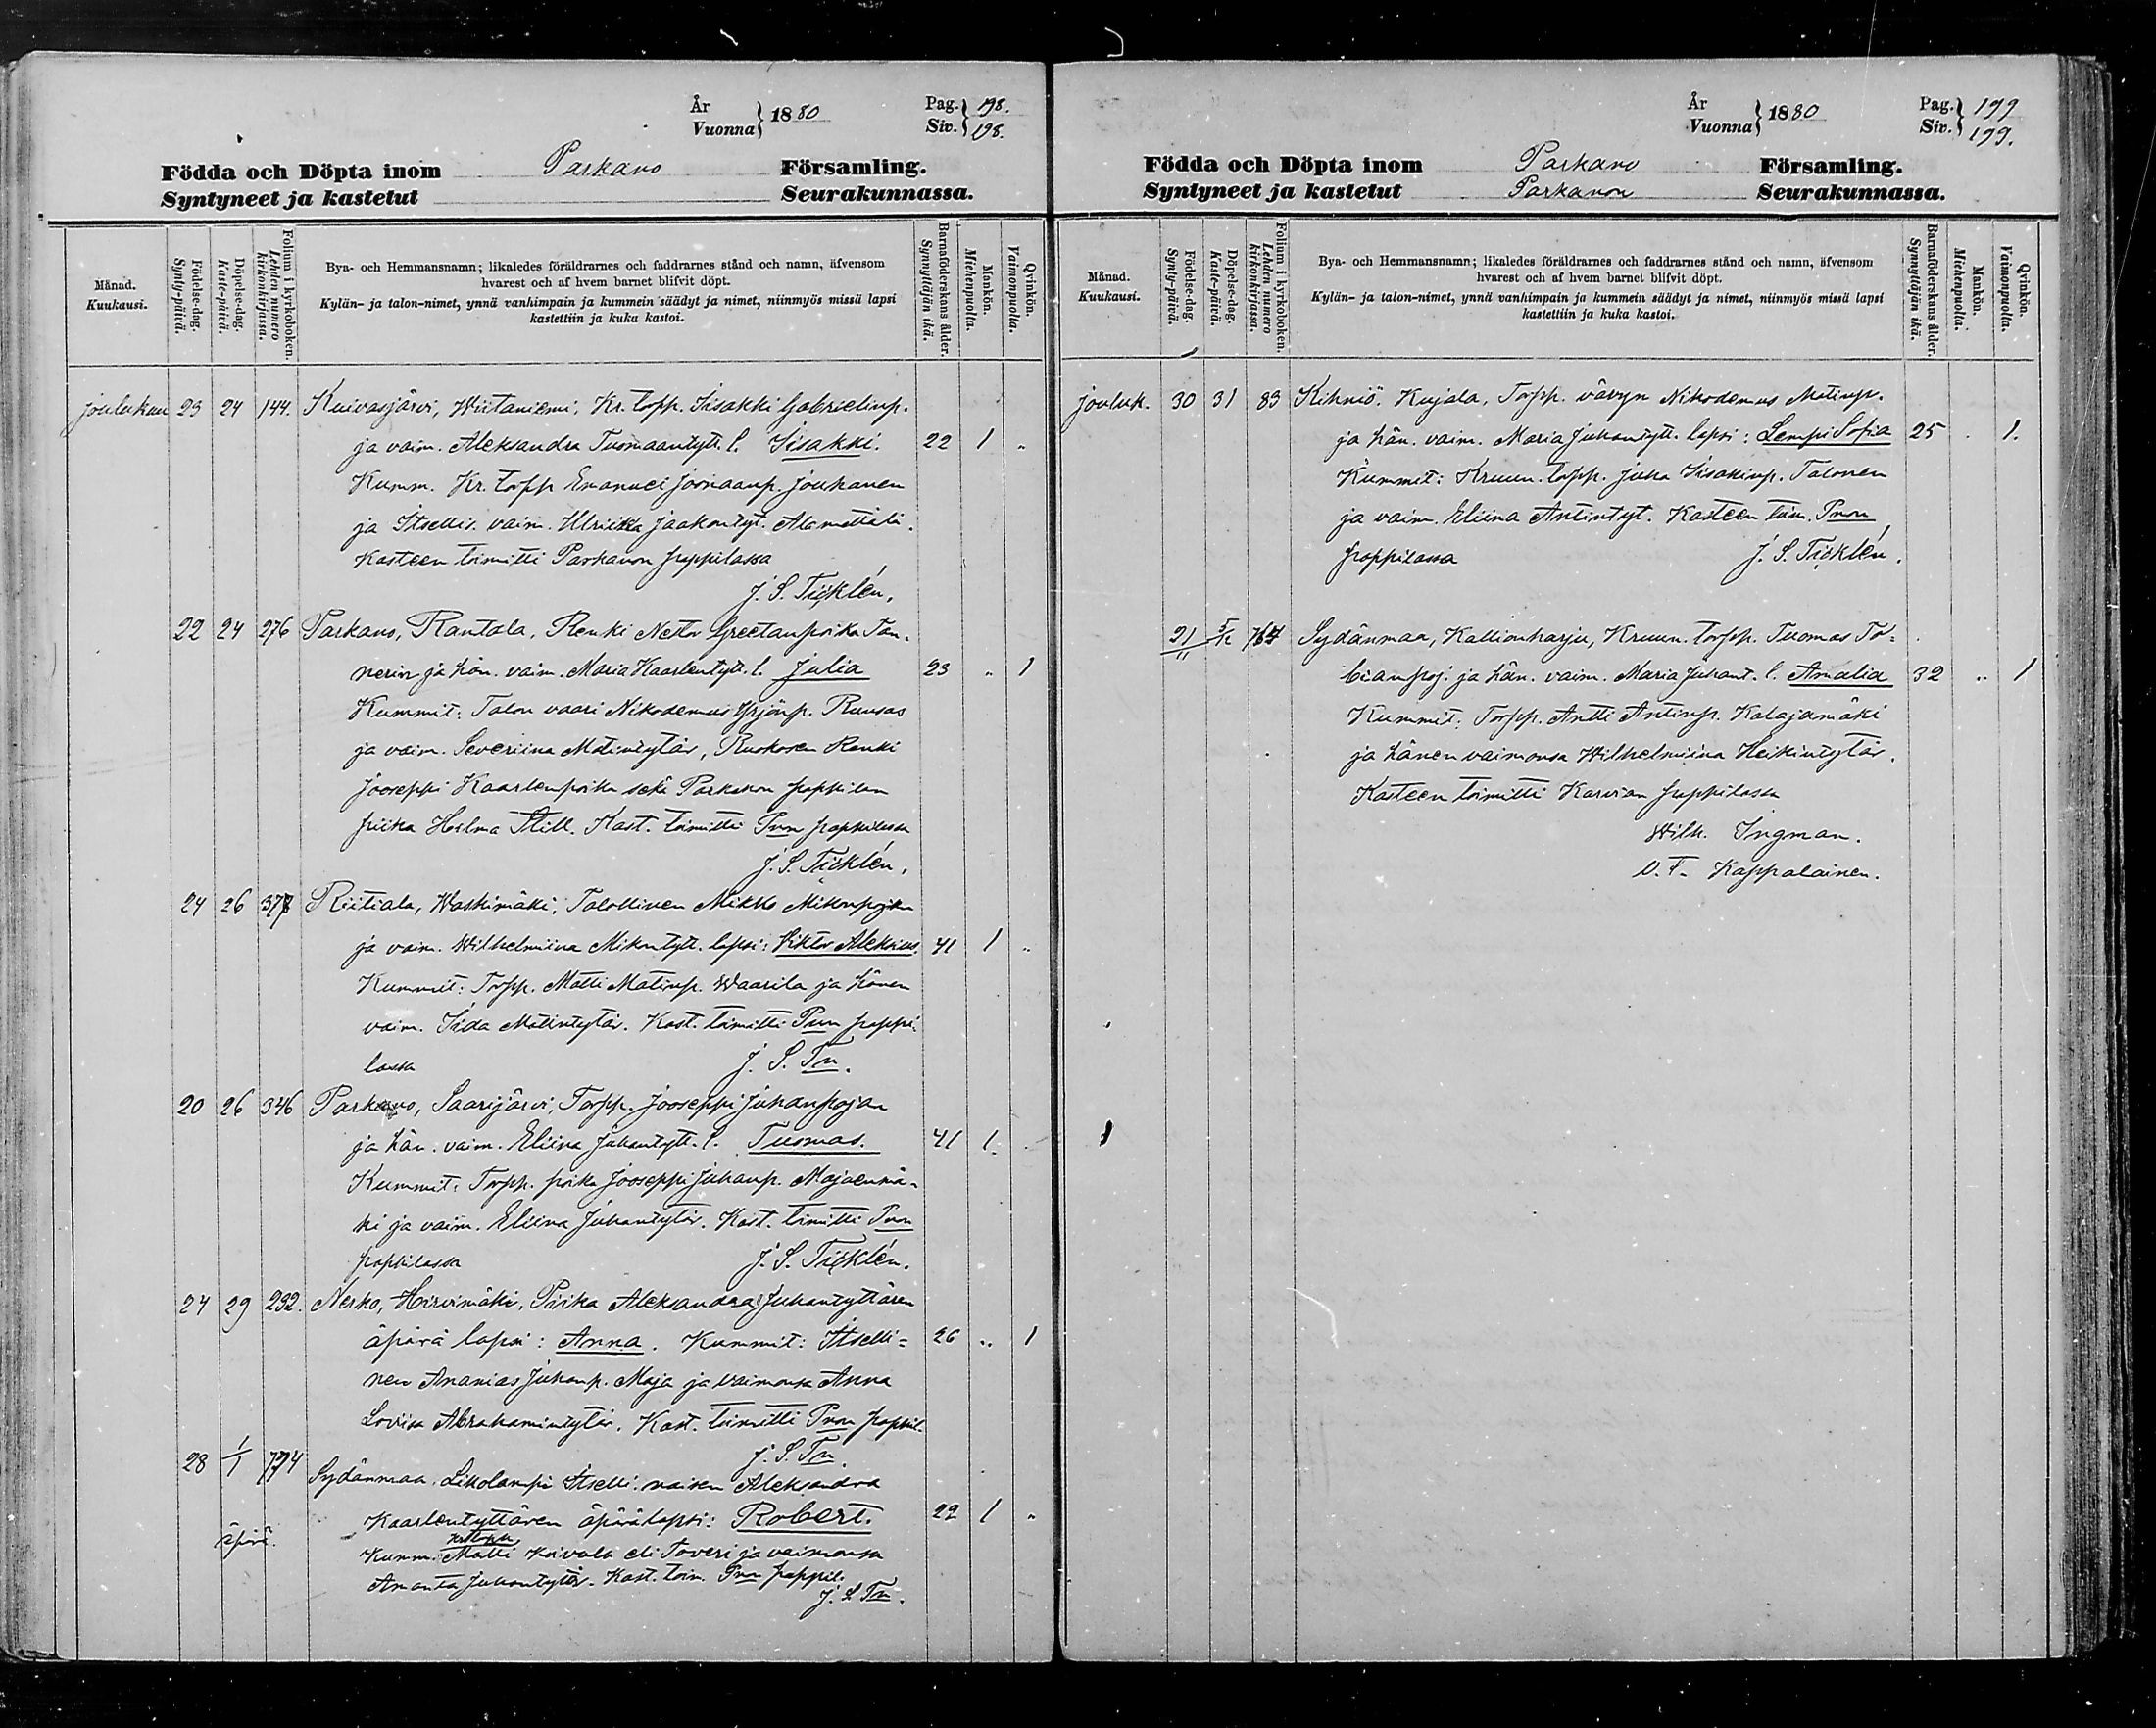 År
Vuonna } 1880
Pag. } 198.
Siv. } 198.
Födda och Döpta inom Parkano Församling.
Syntyneet ja kastetut Seurakunnassa.
Månad.
Kuukausi.
Födelse-dag.
Synty-päivä.
Döpelse-dag.
Kaste-päivä.
Folium i kyrkoboken.
Lehden numero kirkonkirjassa.
Bya- och Hemmansnamn; likaledes föräldrarnes och faddrarnes stånd och namn, äfvensom
hvarest och af hvem barnet blifvit döpt.
Kylän- ja talon-nimet, ynnä vanhimpain ja kummein säädyt ja nimet, niinmyös missä lapsi
kastettiin ja kuka kastoi.
Barnaföderskans ålder.
Synnyttäjän ikä.
Mankön.
Miehenpuolla.
Qvinkön.
Vaimonpuolla.
joulukuu 23 24 144. Kuivasjärvi, Wiitaniemi, Kr. torpp. Iisakki Gabrielinp.
ja vaim. Aleksandra Tuomaantytt. l. Iisakki. 22 1 "
Kumm. Kr. torpp Emanuel Joonaanp. Jouhanen
ja Itsellis. vaim. Ulriikka Jaakontyt. Alamettäli.
Kasteen toimitti Parkanon pappilassa
J. S. Ticklén,
22 24 276 Parkano, Rantala, Renki Nestor Greetanpoika Tan-
nerin ja hän. vaim. Maria Kaarlentytt. l. Julia 23 " 1
Kummit: Talon vaari Nikodemus Yrjönp. Ruusas
ja vaim. Severiina Matintytär, Ruokosen Renki
Jooseppi Kaarlenpoika sekä Parkanon pappilan
piika Helma Still. Kast. toimitti Pnon pappilassa
J. S. Ticklén,
24 26 377 Riitiala, Waskimäki, Talollinen Mikko Mikonpojan
ja vaim. Wilhelmiina Mikontytt. lapsi: Viktor Aleksius. 41 1 "
Kummit: Torpp. Matti Matinp. Waarila ja hänen
vaim. Iida Matintytär. Kast. toimitti Pnon pappi-
lassa J. S. Tn.
20 26 346 Parkano, Saarijärvi, Torpp. Jooseppi Juhanpojan
ja hän. vaim. Eliina Juhantytt. l. Tuomas. 41 1.
Kummit: Torpp. poika Jooseppi Juhanp. Majaenmä-
ki ja vaim. Eliina Juhantytär. Kast. toimitti Pnon
pappilassa J. S. Ticklén.
24 29 232. Nerko, Hirvimäki, Piika Aleksandra Juhantyttären
äpärä lapsi: Anna. Kummit: Itselli= 26 " 1
nen Ananias Juhanp. Maja ja vaimonsa Anna
Loviisa Abrahamintytär. Kast. toimitti Pnon pappil.
J. S. Tn.
28 1/1 774 Sydänmaa. Likolampi Itselli. naisen Aleksandra
Kaarlentyttären äpärälapsi: Robert. 22 1 "
äpärä.
Kumm. Matti Koivula eli Toveri ja vaimonsa
Amanta Juhontytär. Kast. toim. Pnon pappil.
J. S. Tn.
År
Vuonna } 1880
Pag. } 199
Siv. } 199.
Födda och Döpta inom Parkano Församling.
Syntyneet ja kastetut Parkanon Seurakunnassa.
Månad.
Kuukausi.
Födelse-dag.
Synty-päivä.
Döpelse-dag.
Kaste-päivä.
Folium i kyrkoboken.
Lehden numero kirkonkirjassa.
Bya- och Hemmansnamn; likaledes föräldrarnes och faddrarnes stånd och namn, äfvensom
hvarest och af hvem barnet blifvit döpt.
Kylän- ja talon-nimet, ynnä vanhimpain ja kummein säädyt ja nimet, niinmyös missä lapsi
kastettiin ja kuka kastoi.
Barnaföderskans ålder.
Synnyttäjän ikä.
Mankön.
Miehenpuolla.
Qvinkön.
Vaimonpuolla.
jouluk. 30 31 83 Kihniö. Kujala, Torpp. vävyn Nikodemus Matinp.
ja hän. vaim. Maria Juhantytt. lapsi: Lempi Sofia 25 . 1.
Kummit: Kruun. torpp. Juha Iisakinp. Talonen
ja vaim. Eliina Antintyt. Kasteen toim. Pnon
pappilassa J. S. Ticklén.
21/11 5/12 767 Sydänmaa, Kallionharju, Kruun. torpp. Tuomas To=
bianpoj. ja hän. vaim. Maria Juhant. l. Amalia 32 " 1
Kummit: Torpp. Antti Antinp. Kalajamäki
ja hänen vaimonsa Wilhelmiina Heikintytär.
Kasteen toimitti Karvian pappilassa
Wilh. Ingman.
V. T. Kappalainen.